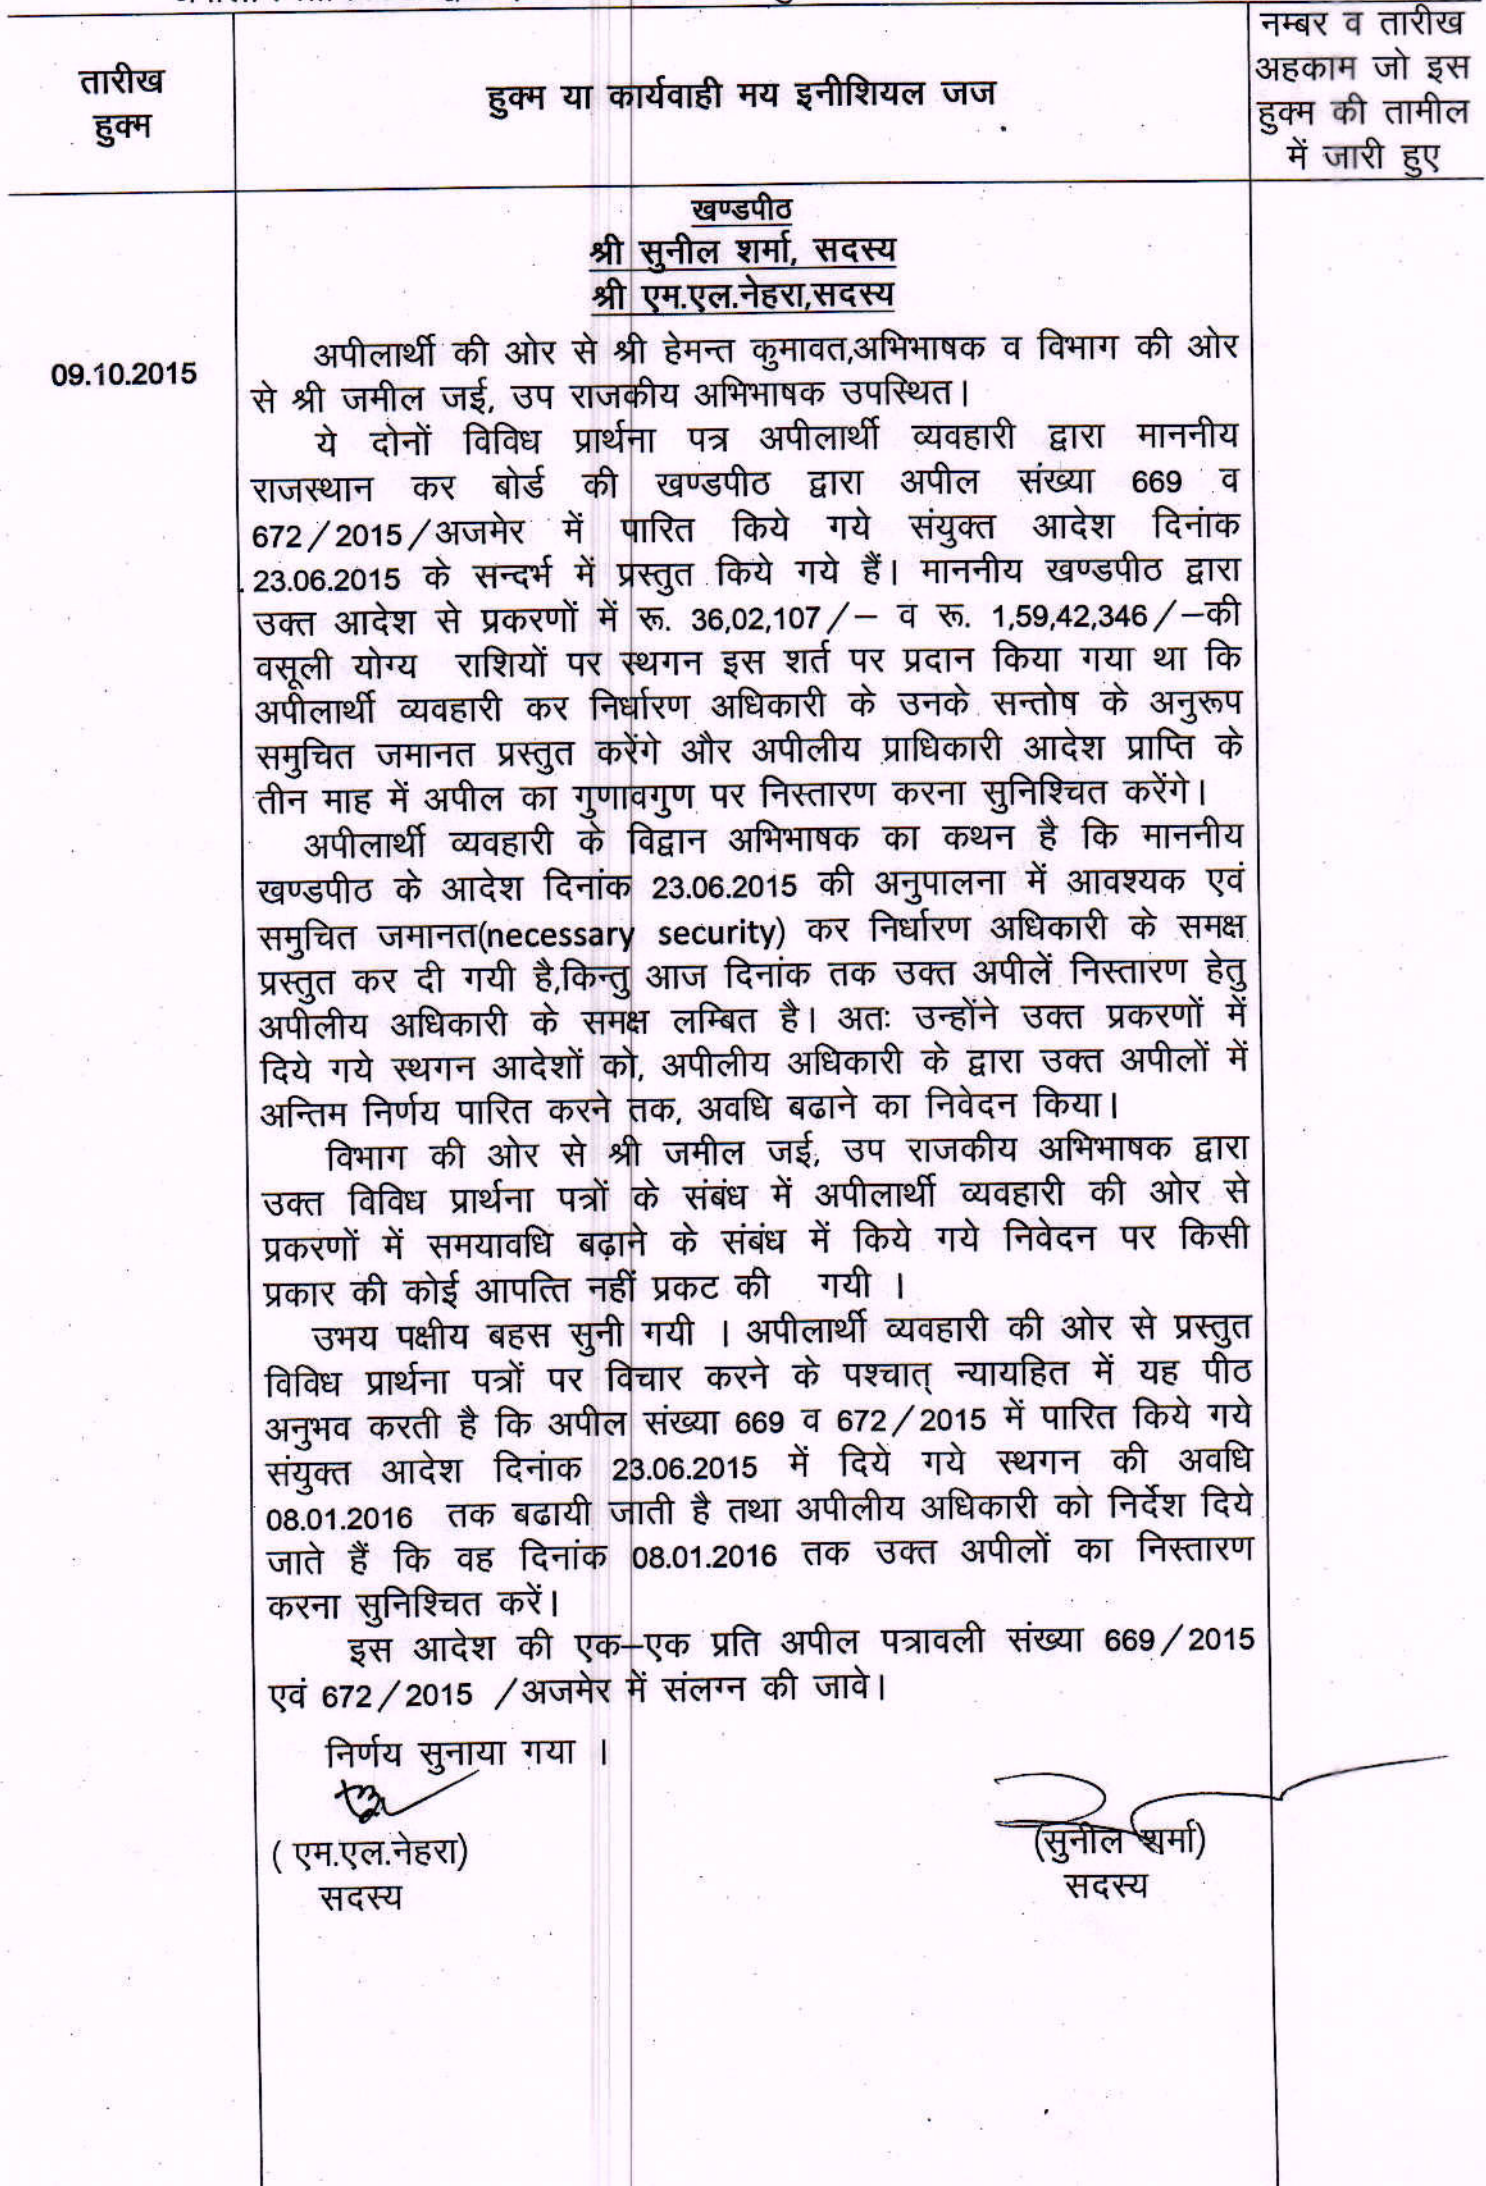 तारीख
हुक्म
हुक्म या कार्यवाही मय इनीशियल जज
नम्बर व तारीख
अहकाम जो इस
हुक्म की तामील
में जारी हुए
खण्डपीठ
श्री सुनील शर्मा, सदस्य
श्री एम.एल.नेहरा,सदस्य
09.10.2015
अपीलार्थी की ओर से श्री हेमन्त कुमावत,अभिभाषक व विभाग की ओर
से श्री जमील जई, उप राजकीय अभिभाषक उपस्थित।
ये दोनों विविध प्रार्थना पत्र अपीलार्थी व्यवहारी द्वारा माननीय
राजस्थान कर बोर्ड की खण्डपीठ द्वारा अपील संख्या 669 व
672/2015/अजमेर में पारित किये गये संयुक्त आदेश दिनांक
23.06.2015 के सन्दर्भ में प्रस्तुत किये गये हैं। माननीय खण्डपीठ द्वारा
उक्त आदेश से प्रकरणों में रू. 36,02,107/– व रू. 1,59,42,346/–की
वसूली योग्य राशियों पर स्थगन इस शर्त पर प्रदान किया गया था कि
अपीलार्थी व्यवहारी कर निर्धारण अधिकारी के उनके सन्तोष के अनुरूप
समुचित जमानत प्रस्तुत करेंगे और अपीलीय प्राधिकारी आदेश प्राप्ति के
तीन माह में अपील का गुणावगुण पर निस्तारण करना सुनिश्चित करेंगे।
अपीलार्थी व्यवहारी के विद्वान अभिभाषक का कथन है कि माननीय
खण्डपीठ के आदेश दिनांक 23.06.2015 की अनुपालना में आवश्यक एवं
समुचित जमानत(necessary security) कर निर्धारण अधिकारी के समक्ष
प्रस्तुत कर दी गयी है,किन्तु आज दिनांक तक उक्त अपीलें निस्तारण हेतु
अपीलीय अधिकारी के समक्ष लम्बित है। अतः उन्होंने उक्त प्रकरणों में
दिये गये स्थगन आदेशों को, अपीलीय अधिकारी के द्वारा उक्त अपीलों में
अन्तिम निर्णय पारित करने तक, अवधि बढाने का निवेदन किया।
विभाग की ओर से श्री जमील जई, उप राजकीय अभिभाषक द्वारा
उक्त विविध प्रार्थना पत्रों के संबंध में अपीलार्थी व्यवहारी की ओर से
प्रकरणों में समयावधि बढ़ाने के संबंध में किये गये निवेदन पर किसी
प्रकार की कोई आपत्ति नहीं प्रकट की गयी ।
उभय पक्षीय बहस सुनी गयी । अपीलार्थी व्यवहारी की ओर से प्रस्तुत
विविध प्रार्थना पत्रों पर विचार करने के पश्चात् न्यायहित में यह पीठ
अनुभव करती है कि अपील संख्या 669 व 672/2015 में पारित किये गये
संयुक्त आदेश दिनांक 23.06.2015 में दिये गये स्थगन की अवधि
08.01.2016 तक बढायी जाती है तथा अपीलीय अधिकारी को निर्देश दिये
जाते हैं कि वह दिनांक 08.01.2016 तक उक्त अपीलों का निस्तारण
करना सुनिश्चित करें।
इस आदेश की एक–एक प्रति अपील पत्रावली संख्या 669/2015
एवं 672/2015 /अजमेर में संलग्न की जावे।
निर्णय सुनाया गया ।
( एम.एल.नेहरा)
सदस्य
(सुनील शर्मा)
सदस्य